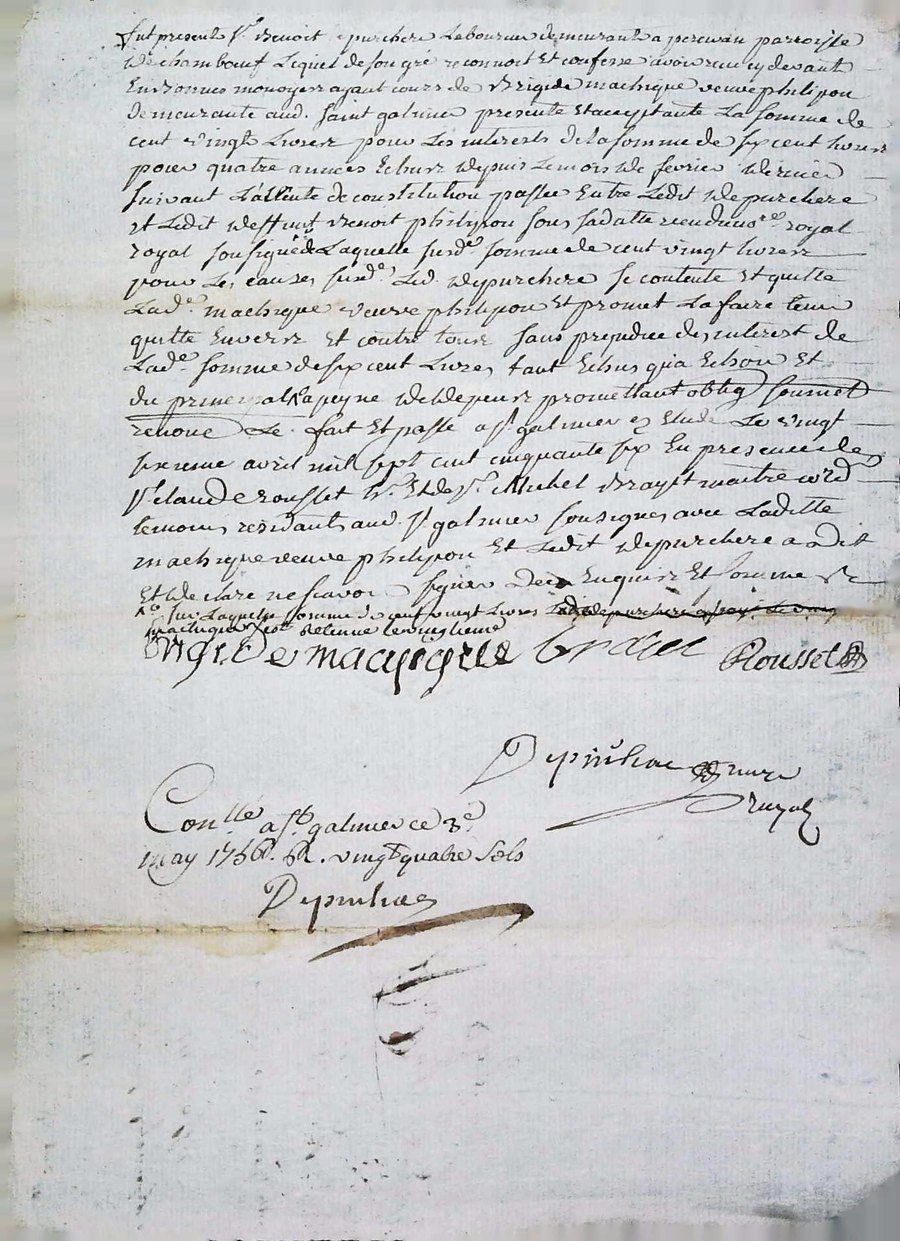 fut present Sr. Benoit epurchere Laboureur demeurant a perewan parroisse
de chambœuf Lequel de son gré reconnoit Et confesse avoir reçu cy devant
En bonnes monoyes ayant cours de Brigide machique veuve philipon
demeurante aud. saint galmier presente Et acceptante La somme de
cent vingt livres pour Les interests de la somme de six cent livres
pour quatre années Echues depuis Le mois de fevrier dernier
suivant L'acte de constitution passée Entre Ledit depurchere
Et Ledit deffunt Benoit philipon sous sa datte no.re royal
royal soussigné de Laquelle susd.e somme de cent vingt livres
pour Les causes susd.e Led. depurchere se contente Et quitte
Lad.e machique veuve philipon Et promet La faire tenir
quitte Envers Et contre tous sans prejudice des interest de
Lad.e somme de six cent Livres tant Echus qu'a Echoir Et
du principal a peyne de depens promettant oblig soumet
renonce &c. fait Et passé a st. galmier Etude Le vingt
sixieme avril mil sept cent cinquante six En presence de
Sr. claude rousset Et de Sr. Michel Brayet maitre cord
temoins residants aud. st. galmier soussignes avec Laditte
machique veuve philipon Et Ledit depurchere a dit
Et declaré ne scavoir signer de ce Enquis Et somme &c
sur Laquelle somme de cent vingt livres
machique retenue le vingtieme
Brigide machique brayet Rousset
Depinhac no.re
royal
Con.lle a st. galmier ce 3e
may 1756. R. vingt quatre sols
Depinhac